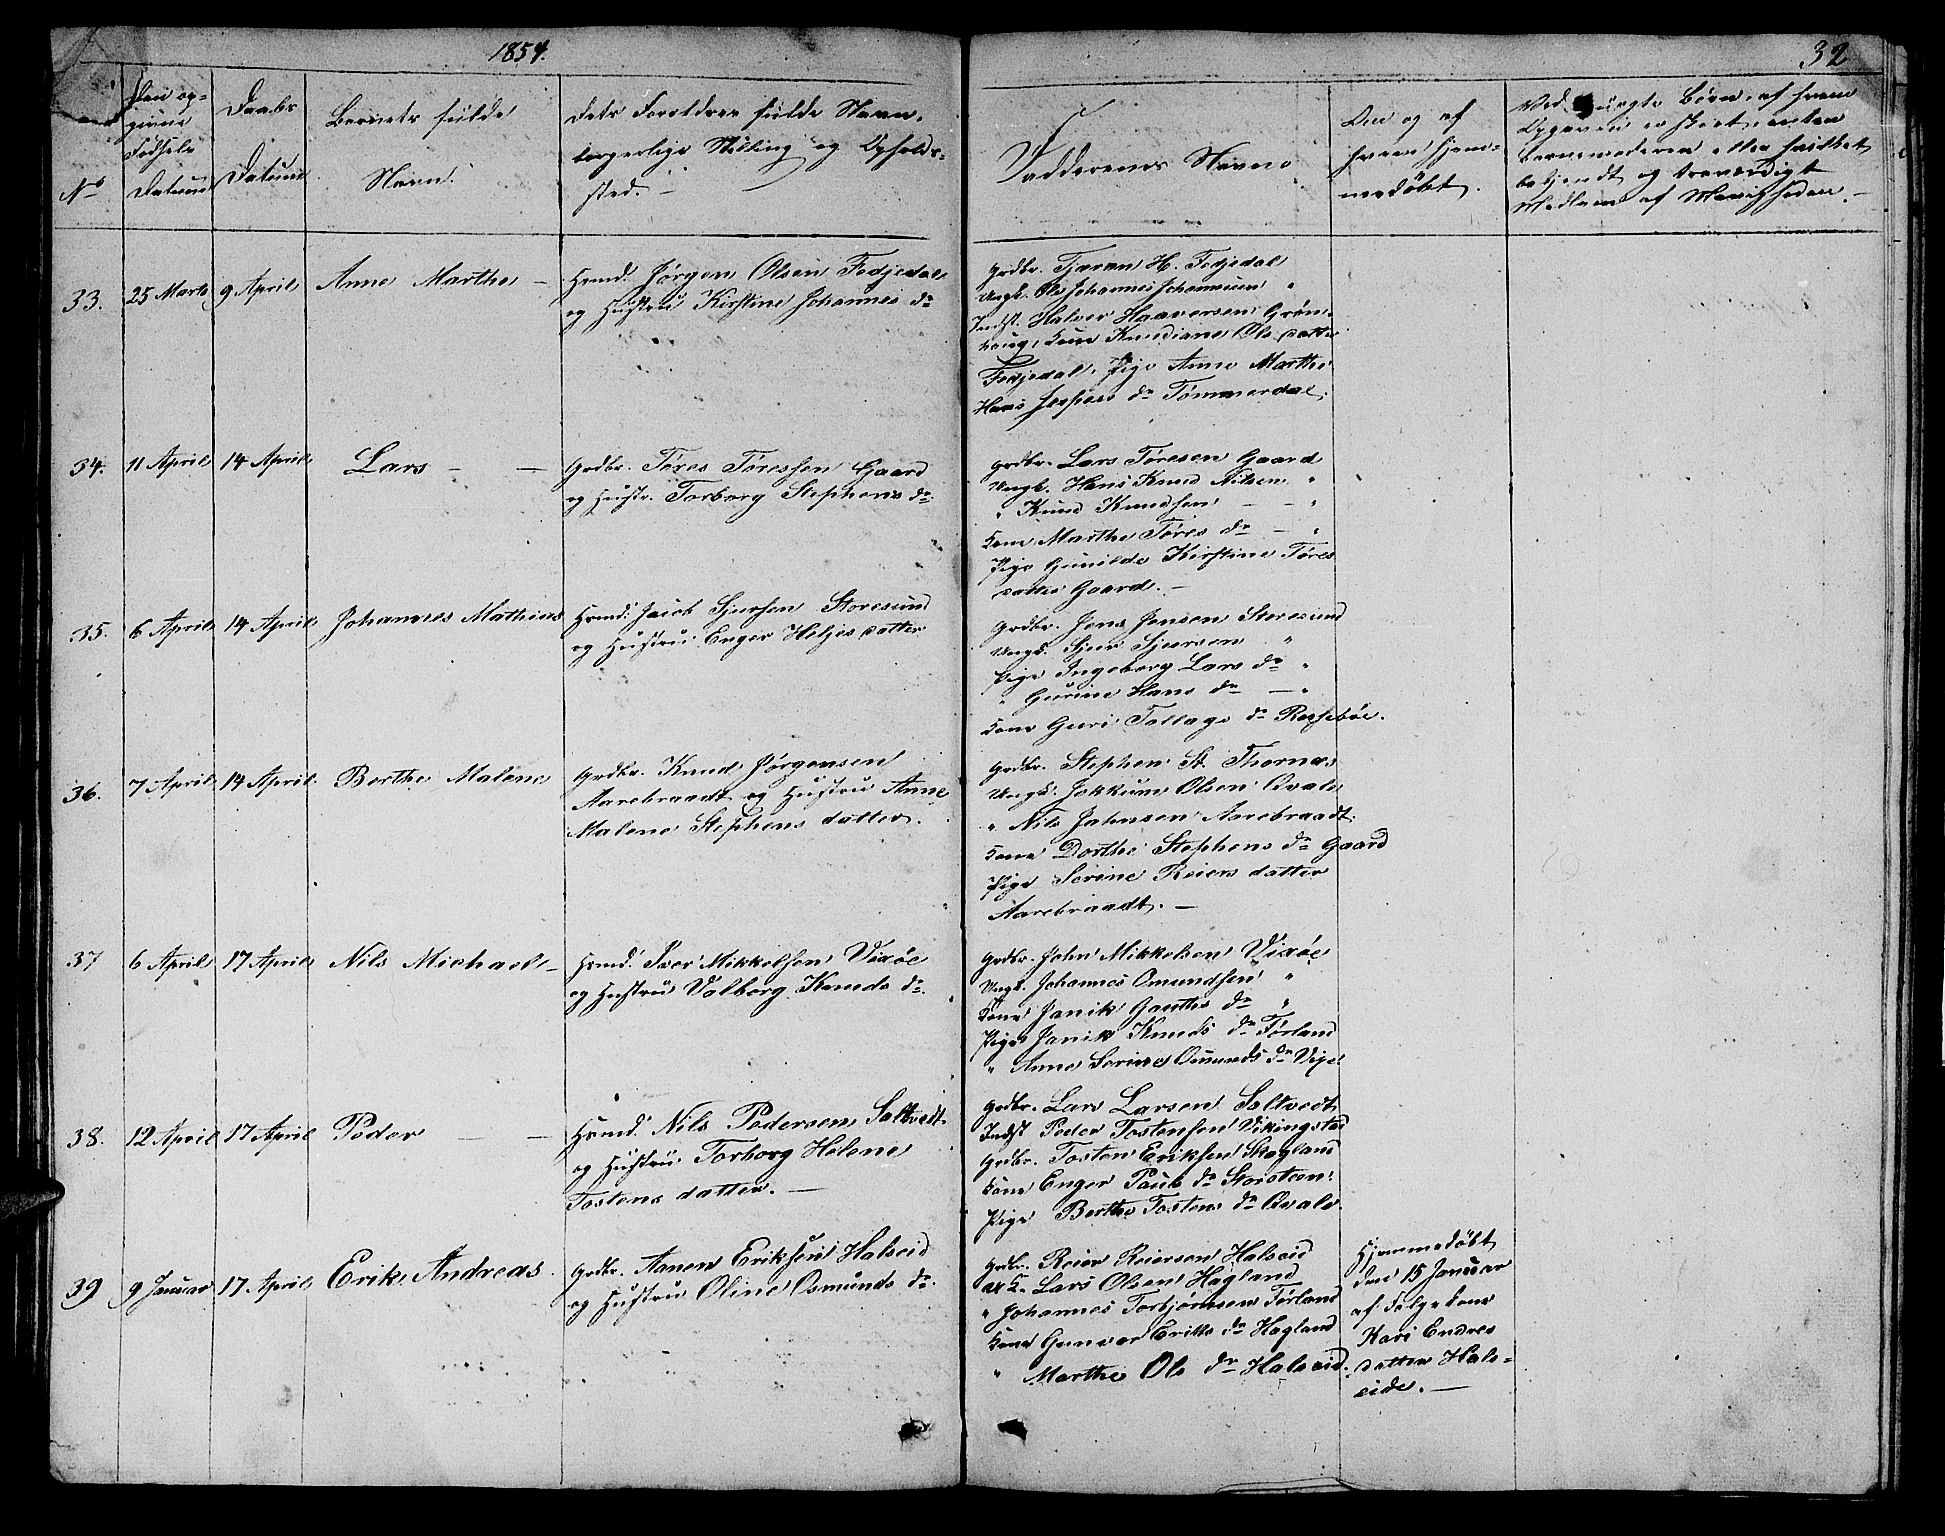 1854.
32
No
Den op-
givne
Fødsels
Datum
Daabs
Datum
Barnets fulde
Navn.
Dets Forældres fulde Navn,
borgerlige Stilling og Opholds-
sted.
Faddernes Navne
Om og af
hvem hjem-
medøbt.
Ved uægte Børn, af hvem
Opgaven er skeet, enten
Barnemoderen eller hvilket
bekjendt og troværdigt
Medlem af Menigheden.
33.
25 Marts
9 April
Anne Marthe
Huusmd. Jørgen Olsen Fedjedal
og Hustru Kirstine Johannes dr
Grdbr. Tjeran H. Fedjedal
Ungk. Ole Johannes Johannesen "
Indst. Halvor Haaversen Grøn-
houg, Kone Knudiane Ols datter
Fedjedal, Pige Anne Marthe
Hans Jespers dr Tømmerdal.
34.
11 April
14 April
Lars
Grdbr. Tøres Tøressen Gaard
og Hustr. Torborg Stephens dr
Grdbr. Lars Tøresen Gaard
Ungk. Hans Knud Nilsen "
" Knud Knudsen "
Kone Marthe Tøres dr "
Pige Gunilde Kirstine Tøres
datter Gaard.
35.
6 April
14 April
Johannes Mathias
Huusmd. Jacob Sjursen Storesund
og Hustru Enger Heljes datter
Grdbr. Jens Jensen Storesund
Ungk. Sjur Sjursen "
Pige Ingeborg Lars dr "
" Gurine Hans dr "
Kone Guri Tollags dr Rossebøe.
36.
7 April
14 April
Berthe Malene
Grdbr. Knud Jørgensen
Aarebraadt og Hustru Anne
Malene Stephens datter.
Grdbr. Stephen St. Thornæs
Ungk. Jokkum Olsen Qvale
" Nils Johnsen Aarebraadt.
Kone Dorthe Stephens dr Gaard
Pige Serine Reiers datter
Aarebraadt.
37
6 April
17 April
Nils Michael
Huusmd. Iver Mikkelsen Vixøe
og Hustru Valborg Knuds dr.
Grdbr. John Mikkelsen Vixøe
Ungk. Johannes Omundsen "
Kone Janik Gauthes dr "
Pige Janik Knuds dr Førland
" Anne Serine Omunds dr
38.
12 April
17 April
Peder
Huusmd. Nils Pedersen Saltvedt
og Hustru Torborg Helene
Tostens datter.
Grdbr. Lars Larsen Saltvedt
Indst Peder Tostensen Vikingstad
Grdbr. Tosten Eriksen Skogland
Kone Enger Pauls dr Storsteen.
Pige Berthe Tostens dr Qvale.
39
9 Januar
17 April
Erik Andreas
Grdbr. Aanen Eriksen Halseid
og Hustru Oline Osmunds dr.
Grdbr. Reier Reiersen Halseid
Lars Olsen Hagland
" Johannes Torbjørnsen Førland
Kone Gunvor Eriks dr Hagland
" Marthe Ols dr Halseid.
Hjemmedøbt
den 15 Januar
af Følgekone
Kari Endres
datter Hals-
eide.